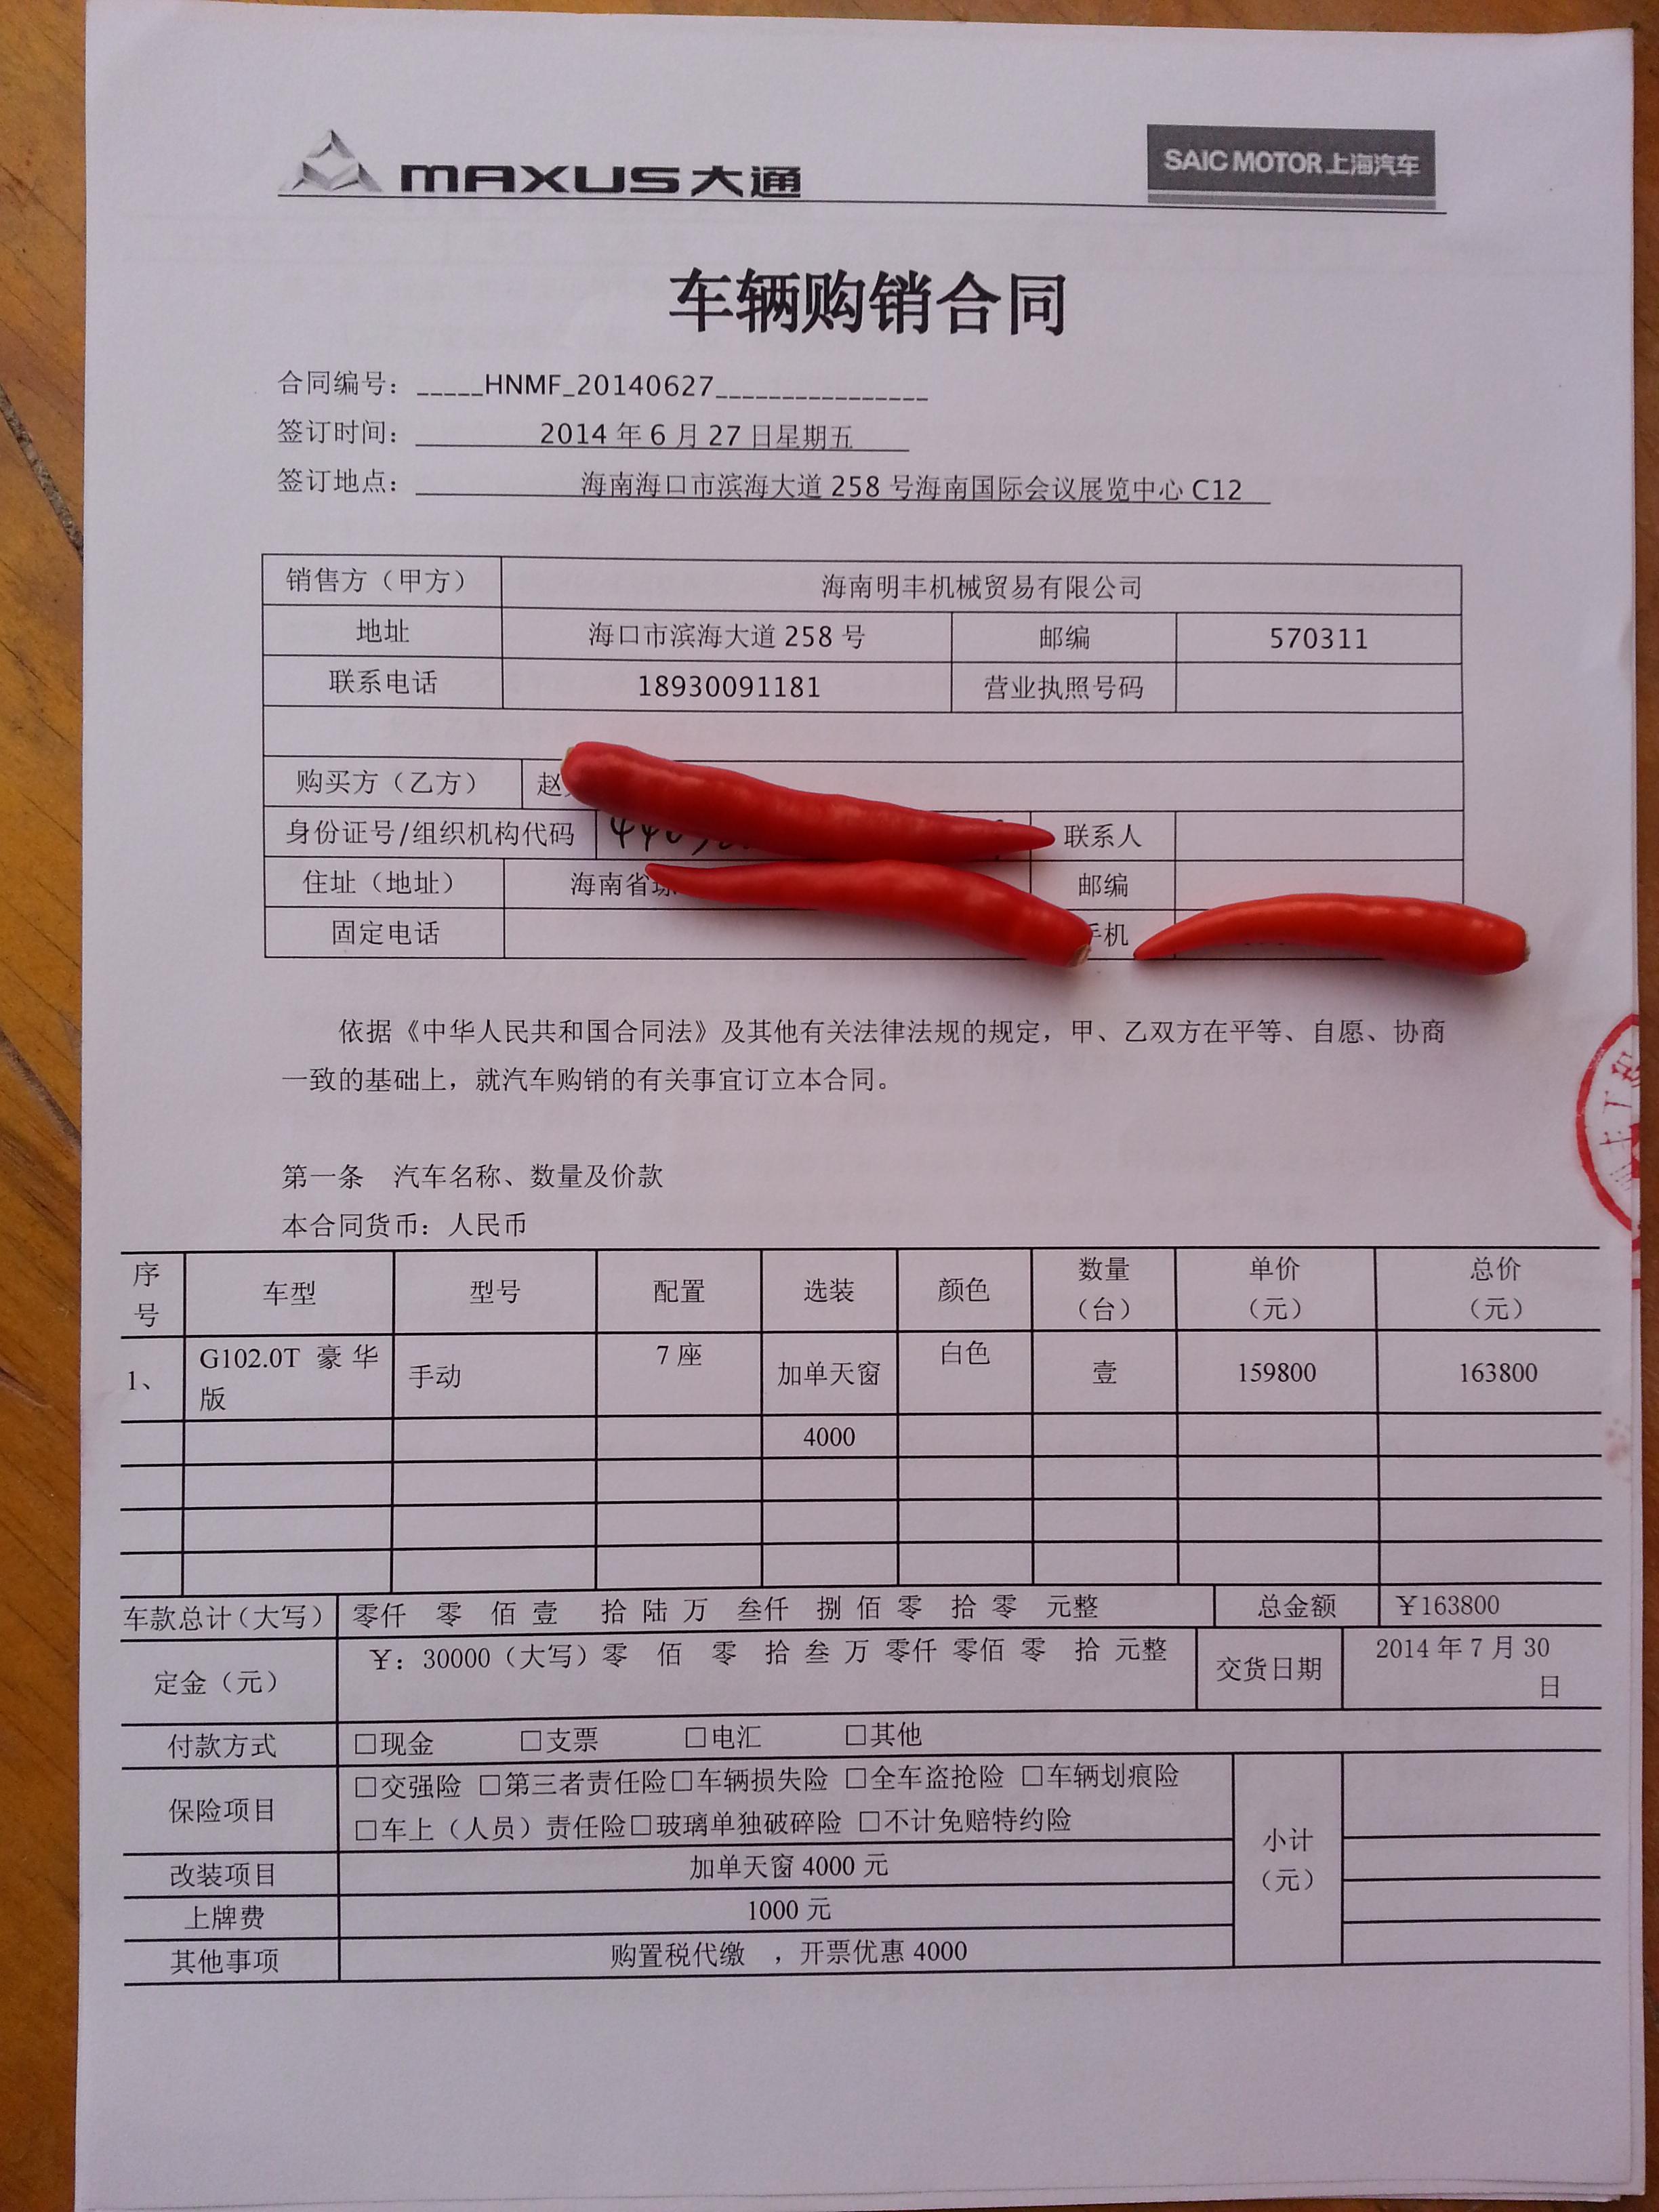 MAXUS大通
SAIC MOTOR上海汽车
车辆购销合同
合同编号：_____HNMF_20140627________________
签订时间： 2014 年 6 月 27 日星期五
签订地点： 海南海口市滨海大道 258 号海南国际会议展览中心 C12
销售方（甲方） 海南明丰机械贸易有限公司
地址 海口市滨海大道 258 号 邮编 570311
联系电话 18930091181 营业执照号码
购买方（乙方） 赵
身份证号/组织机构代码 440 联系人
住址（地址） 海南省 邮编
固定电话 手机
依据《中华人民共和国合同法》及其他有关法律法规的规定，甲、乙双方在平等、自愿、协商
一致的基础上，就汽车购销的有关事宜订立本合同。
第一条 汽车名称、数量及价款
本合同货币：人民币
序号 车型 型号 配置 选装 颜色 数量（台） 单价（元） 总价（元）
1、 G102.0T 豪华版 手动 7 座 加单天窗 白色 壹 159800 163800
4000
车款总计（大写） 零仟 零 佰 壹 拾 陆 万 叁仟 捌 佰 零 拾 零 元整 总金额 ￥163800
定金（元） ￥：30000（大写）零 佰 零 拾 叁 万 零仟 零佰 零 拾 元整 交货日期 2014 年 7 月 30 日
付款方式 □现金 □支票 □电汇 □其他
保险项目 □交强险 □第三者责任险□车辆损失险 □全车盗抢险 □车辆划痕险
□车上（人员）责任险□玻璃单独破碎险 □不计免赔特约险
小计（元）
改装项目 加单天窗 4000 元
上牌费 1000 元
其他事项 购置税代缴 ，开票优惠 4000